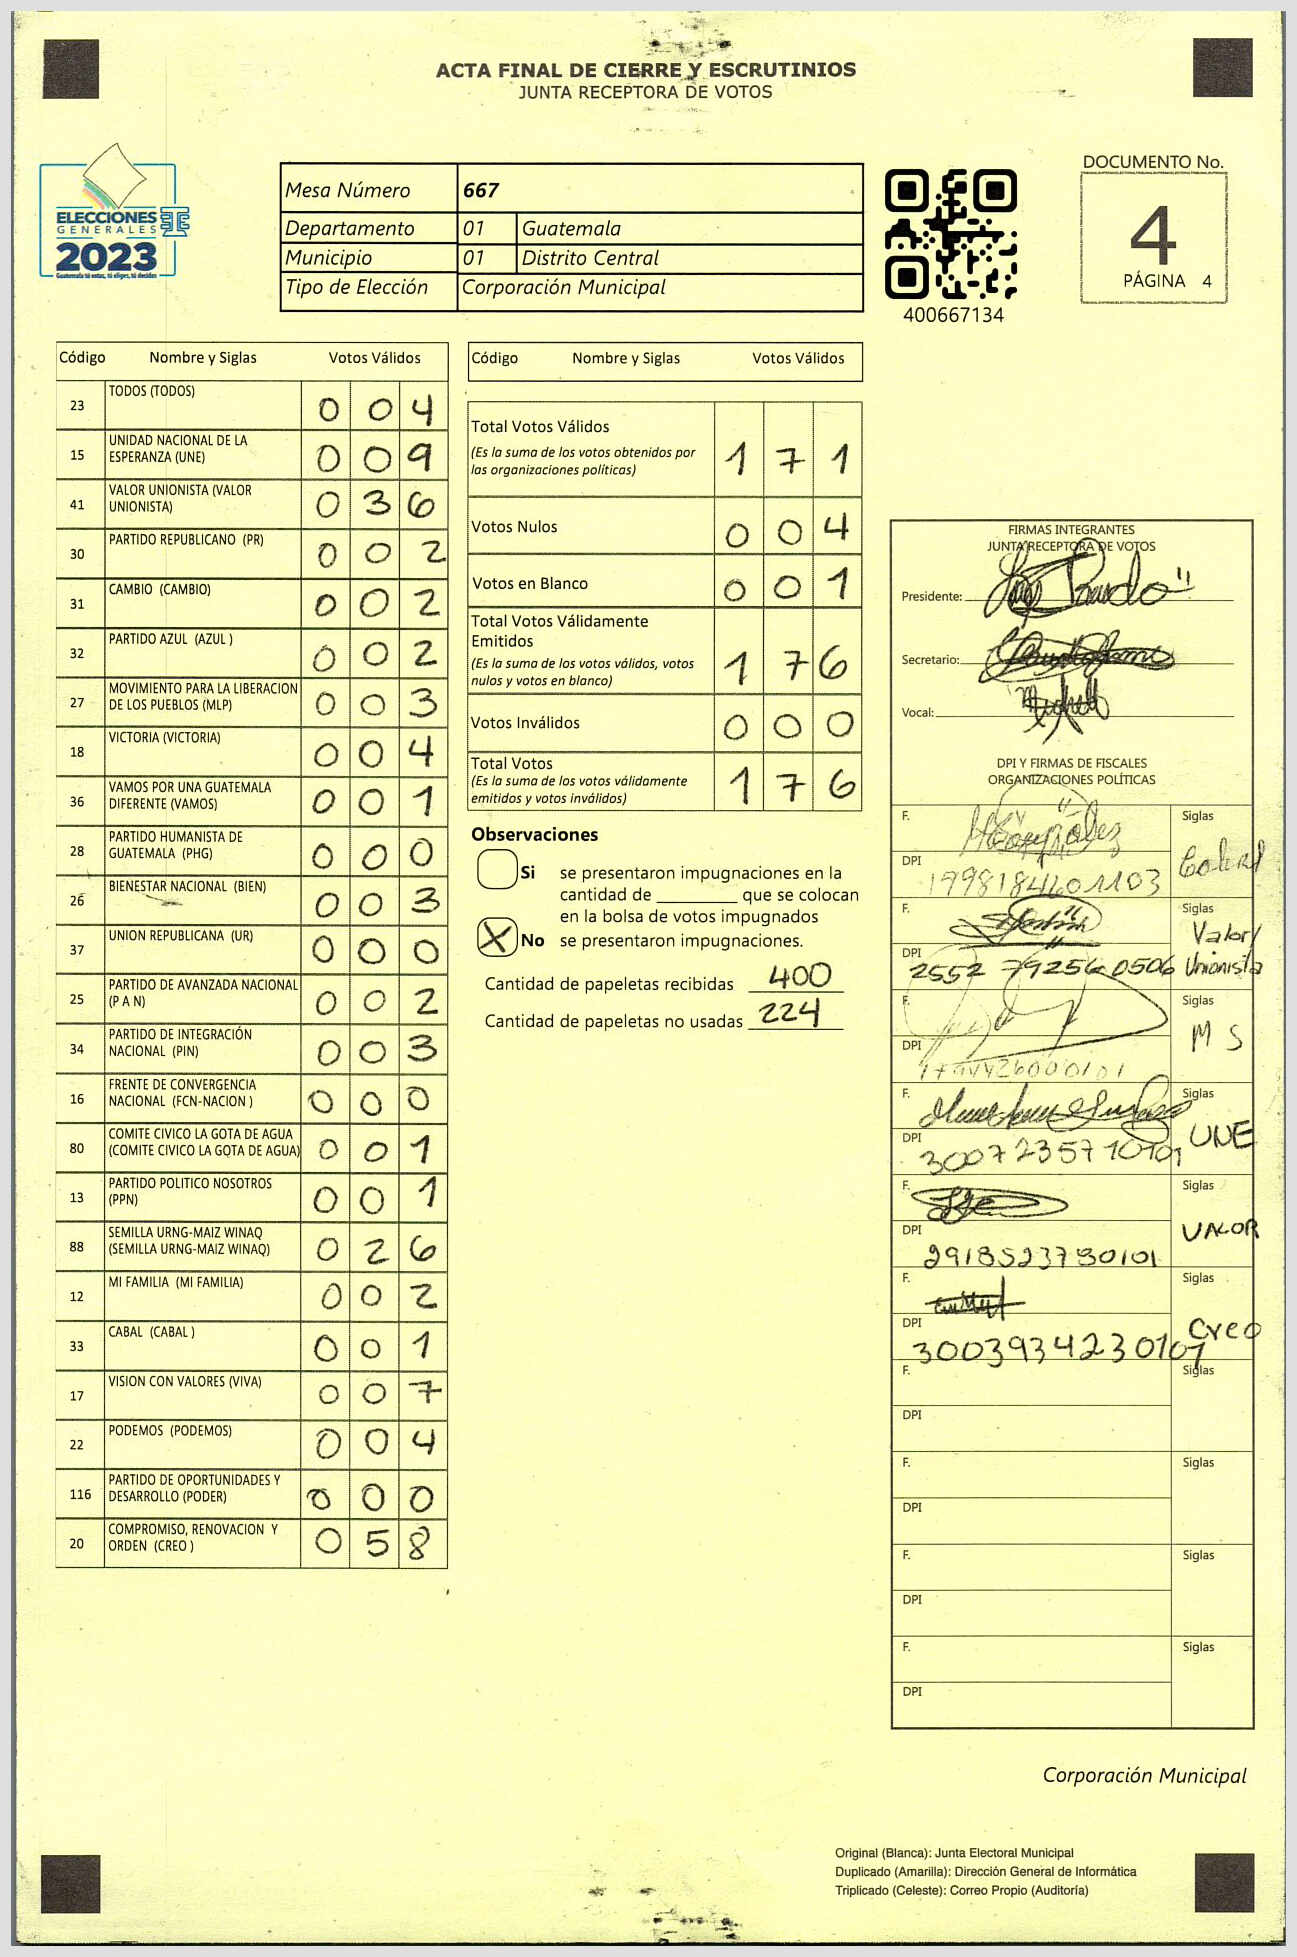 ACTA FINAL DE CIERRE Y ESCRUTINIOS
JUNTA RECEPTORA DE VOTOS
ELECCIONES
GENERALES
2023
Guatemala tú votas, tú eliges, tú decides
Mesa Número 667
Departamento 01 Guatemala
Municipio 01 Distrito Central
Tipo de Elección Corporación Municipal
400667134
DOCUMENTO No.
4
PÁGINA 4
Código Nombre y Siglas Votos Válidos
23 TODOS (TODOS) 0 0 4
15 UNIDAD NACIONAL DE LA
ESPERANZA (UNE) 0 0 9
41 VALOR UNIONISTA (VALOR
UNIONISTA) 0 3 6
30 PARTIDO REPUBLICANO (PR) 0 0 2
31 CAMBIO (CAMBIO) 0 0 2
32 PARTIDO AZUL (AZUL ) 0 0 2
27 MOVIMIENTO PARA LA LIBERACION
DE LOS PUEBLOS (MLP) 0 0 3
18 VICTORIA (VICTORIA) 0 0 4
36 VAMOS POR UNA GUATEMALA
DIFERENTE (VAMOS) 0 0 1
28 PARTIDO HUMANISTA DE
GUATEMALA (PHG) 0 0 0
26 BIENESTAR NACIONAL (BIEN) 0 0 3
37 UNION REPUBLICANA (UR) 0 0 0
25 PARTIDO DE AVANZADA NACIONAL
(P A N) 0 0 2
34 PARTIDO DE INTEGRACIÓN
NACIONAL (PIN) 0 0 3
16 FRENTE DE CONVERGENCIA
NACIONAL (FCN-NACION ) 0 0 0
80 COMITE CIVICO LA GOTA DE AGUA
(COMITE CIVICO LA GOTA DE AGUA) 0 0 1
13 PARTIDO POLITICO NOSOTROS
(PPN) 0 0 1
88 SEMILLA URNG-MAIZ WINAQ
(SEMILLA URNG-MAIZ WINAQ) 0 2 6
12 MI FAMILIA (MI FAMILIA) 0 0 2
33 CABAL (CABAL ) 0 0 1
17 VISION CON VALORES (VIVA) 0 0 7
22 PODEMOS (PODEMOS) 0 0 4
116 PARTIDO DE OPORTUNIDADES Y
DESARROLLO (PODER) 0 0 0
20 COMPROMISO, RENOVACION Y
ORDEN (CREO ) 0 5 8
Código Nombre y Siglas Votos Válidos
Total Votos Válidos
(Es la suma de los votos obtenidos por
las organizaciones políticas) 1 7 1
Votos Nulos 0 0 4
Votos en Blanco 0 0 1
Total Votos Válidamente
Emitidos
(Es la suma de los votos válidos, votos
nulos y votos en blanco) 1 7 6
Votos Inválidos 0 0 0
Total Votos
(Es la suma de los votos válidamente
emitidos y votos inválidos) 1 7 6
Observaciones
Si se presentaron impugnaciones en la
cantidad de ________ que se colocan
en la bolsa de votos impugnados
X No se presentaron impugnaciones.
Cantidad de papeletas recibidas 400
Cantidad de papeletas no usadas 224
FIRMAS INTEGRANTES
JUNTA RECEPTORA DE VOTOS
Presidente:
Secretario:
Vocal:
DPI Y FIRMAS DE FISCALES
ORGANIZACIONES POLÍTICAS
F. Siglas
DPI
F. Siglas Valor/
DPI 2552 79256 0506 Unionista
F. Siglas M S
DPI
F. Siglas UNE
DPI 3007235710101
F. Siglas VALOR
DPI 2918523780101
F. Siglas Creo
DPI 3003934230101
F. Siglas
DPI
F. Siglas
DPI
F. Siglas
DPI
F. Siglas
DPI
Corporación Municipal
Original (Blanca): Junta Electoral Municipal
Duplicado (Amarilla): Dirección General de Informática
Triplicado (Celeste): Correo Propio (Auditoría)